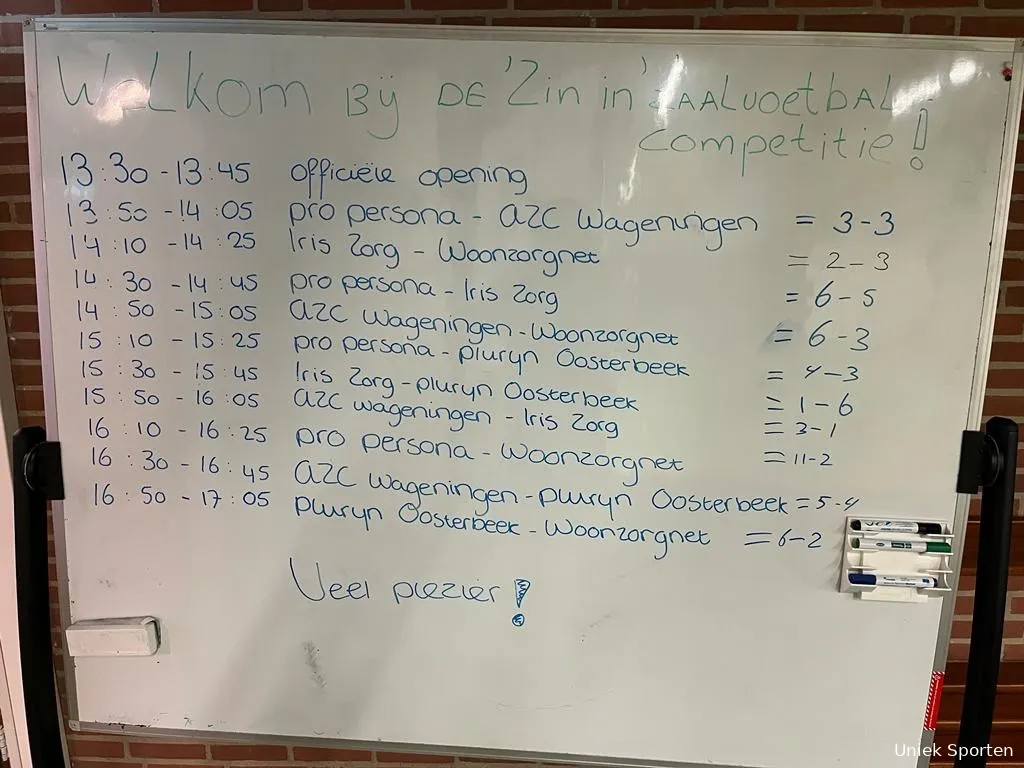 Welkom Bij DE 'Zin in' ZAALvoetbAL
competitie!
13:30 - 13:45 officiële opening
13:50 - 14:05 pro persona - AZC Wageningen = 3-3
14:10 - 14:25 Iris Zorg - Woonzorgnet = 2-3
14:30 - 14:45 pro persona - Iris Zorg = 6-5
14:50 - 15:05 AZC Wageningen - Woonzorgnet = 6-3
15:10 - 15:25 pro persona - pluryn Oosterbeek = 4-3
15:30 - 15:45 Iris Zorg - pluryn Oosterbeek = 1-6
15:50 - 16:05 AZC wageningen - Iris Zorg = 3-1
16:10 - 16:25 pro persona - Woonzorgnet = 11-2
16:30 - 16:45 AZC Wageningen - pluryn Oosterbeek = 5-4
16:50 - 17:05 pluryn Oosterbeek - Woonzorgnet = 6-2
Veel plezier!
Uniek Sporten